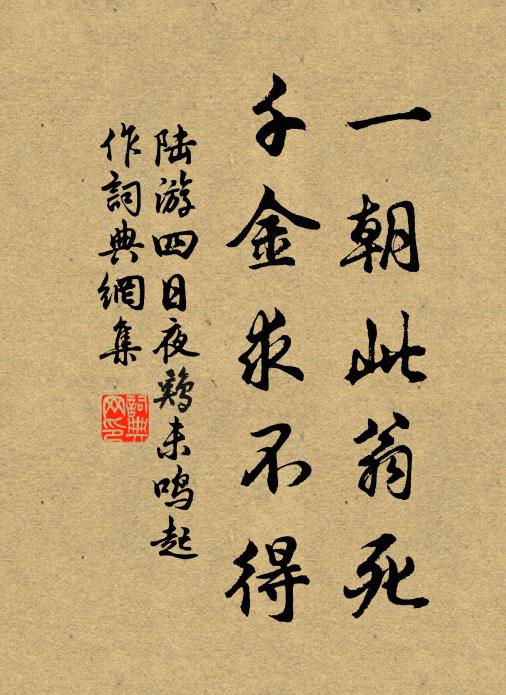 一朝此翁死
千金求不得
陆游四日夜鸡未鸣起
作词典网集
詞典
网印